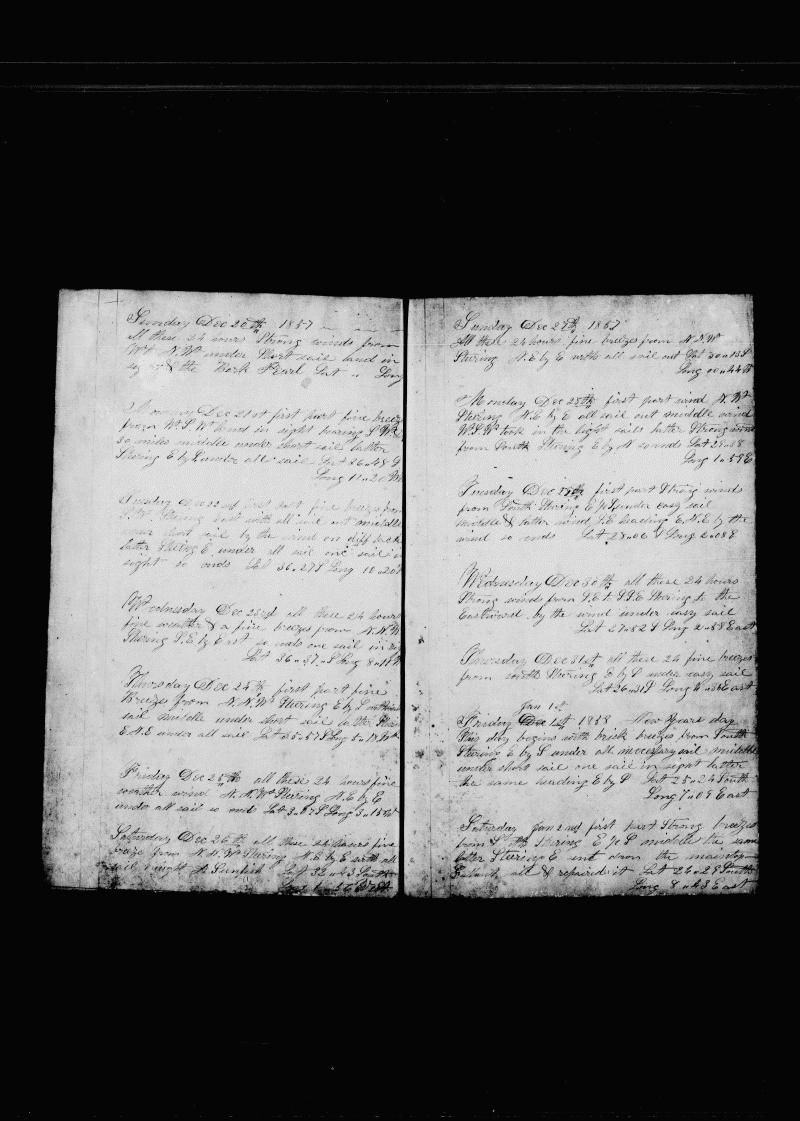 Sunday Dec 20th 1857
All these 24 hours Strong winds from
W & N.W. under short sail land in
sight & the Bark Pearl Lat " Long
Monday Dec 21st first part fine breezes
from W.S.W. land in sight bearing S.W.
30 miles middle under short sail latter
Stering E by S under all sail Lat 36.48 S
Long 11.20 W
Tuesday Dec 22nd first part fine breezes from
Stering East with all sail out middle
short sail by the wind on diff tacks
latter Stering E. under all sail one sail in
sight so ends Lat 36.27 S Long 10.20 W
Wednesday Dec 23rd all these 24 hours
fine weather & a fine breezes from N.N.W
Stering S.E. by East so ends one sail in
Lat 36.37 S Long 8.18 W
Thursday Dec 24th first part fine
Breezes from N.N.W. Stering E by S
sail middle under short sail latter
E.N.E under all sail Lat 35.57 S Long 5.18 W
Friday Dec 25th all these 24 hours fine
weather wind N.N.W. Stering N.E by E
under all sail so ends Lat Long 3.18 W
Saturday Dec 26th all these 24 hours fine
breeze from N.N.W. Stering N.E. by E with all
sail Lat 32.43 South
West
Sunday Dec 27th 1857
All these 24 hours fine breezes from N.N.W
Stering N.E by E with all sail out Lat 30.13 S
Long 00.44 W
Monday Dec 28th first part wind N.W.
Stering N.E by E all sail out middle wind
W.S.W. took in the light sails latter Strong wind
from South Stering E by N so ends Lat 28.38
Long 1.59 E
Tuesday Dec 29th first part Strong winds
from South Stering E ½ S under easy sail
middle & latter wind S.E. heading E.N.E by the
wind so ends Lat 28.06 S Long 2.08 E
Wednesday Dec 30th all these 24 hours
Strong winds from S.E. to S.S.E Stering to the
Eastward by the wind under easy sail
Lat 27.52 S Long 2.58 East
Thursday Dec 31st all these 24 fine breezes
from south Stering E by S under easy sail
Lat 26.31 S Long 4.38 East
Jan 1st
Friday 1858 New Years day
This day begins with brisk breezes from South
Stering E by S under all necessary sail middle
under short sail one sail in sight latter
the same heading E by S Lat 25.24 South
Long 7.09 East
Saturday Jan 2nd first part Strong breezes
from S Stering E ½ S middle the same
latter Stering E sent down the maintop
Galant all & repaired it Lat 24.28 South
Long 8.43 East